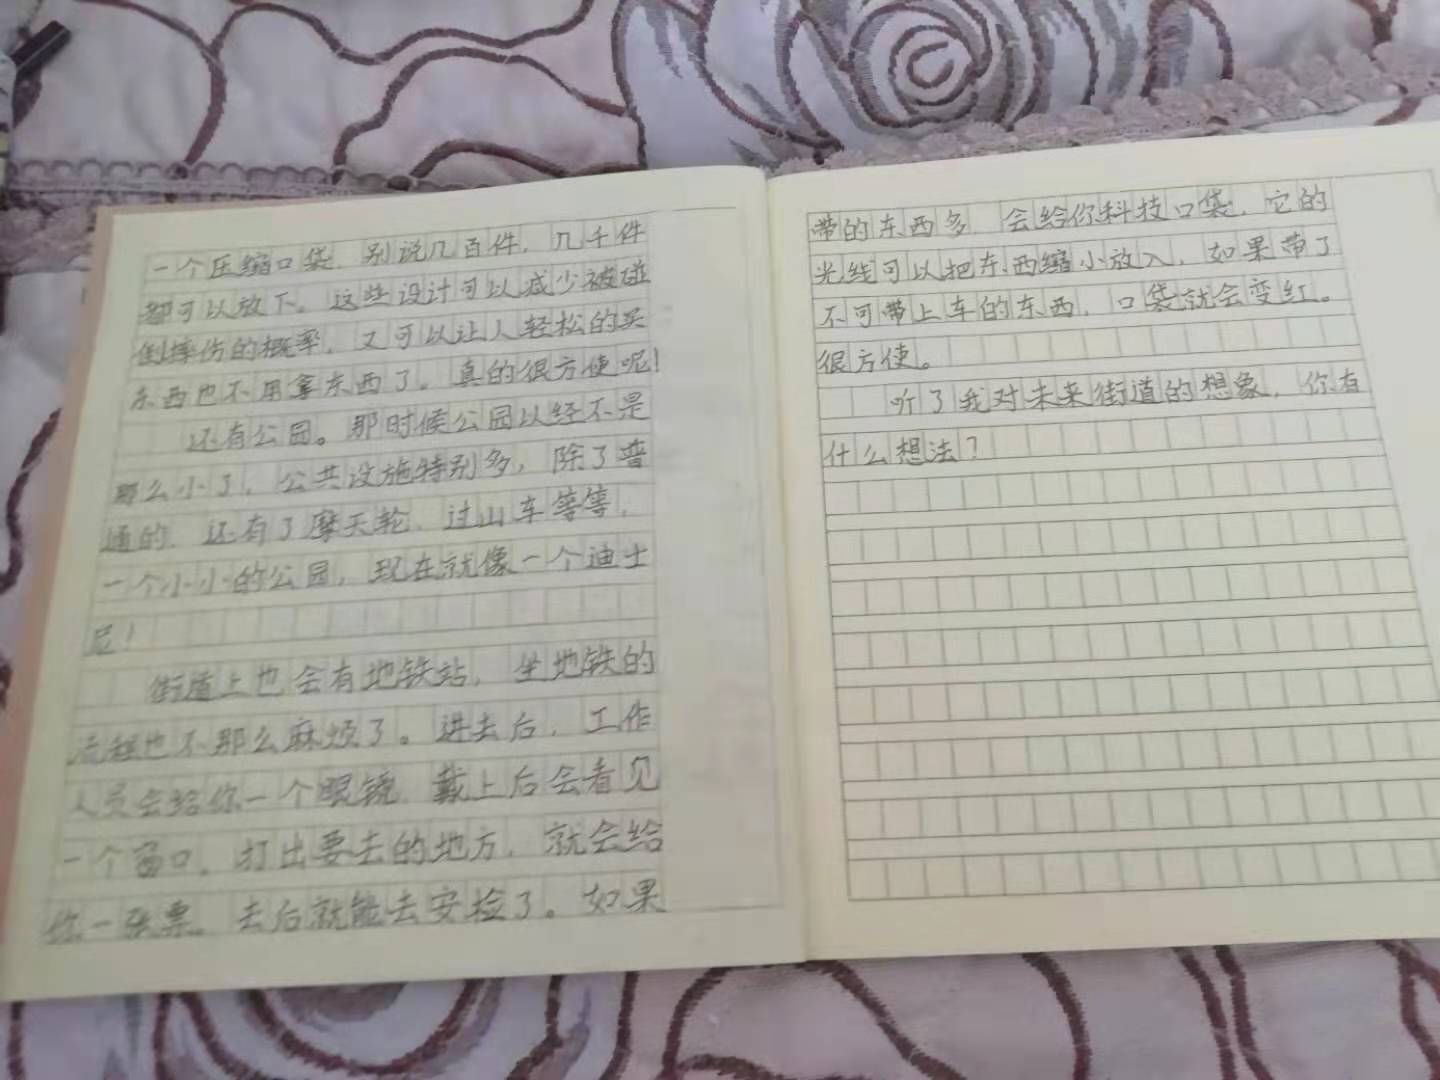 一个压缩口袋，别说几百件，几千件
都可以放下。这些设计可以减少被碰
倒摔伤的概率，又可以让人轻松的买
东西也不用拿东西了。真的很方便呢！
还有公园。那时候公园以经不是
那么小了，公共设施特别多，除了普
通的，还有了摩天轮、过山车等等，
一个小小的公园，现在就像一个迪士
尼！
街道上也会有地铁站，坐地铁的
流程也不那么麻烦了。进去后，工作
人员会给你一个眼镜，戴上后会看见
一个窗口，打出要去的地方，就会给
你一张票。去后就能去安检了。如果
带的东西多，会给你科技口袋，它的
光线可以把东西缩小放入，如果带了
不可带上车的东西，口袋就会变红。
很方便。
听了我对未来街道的想象，你有
什么想法？